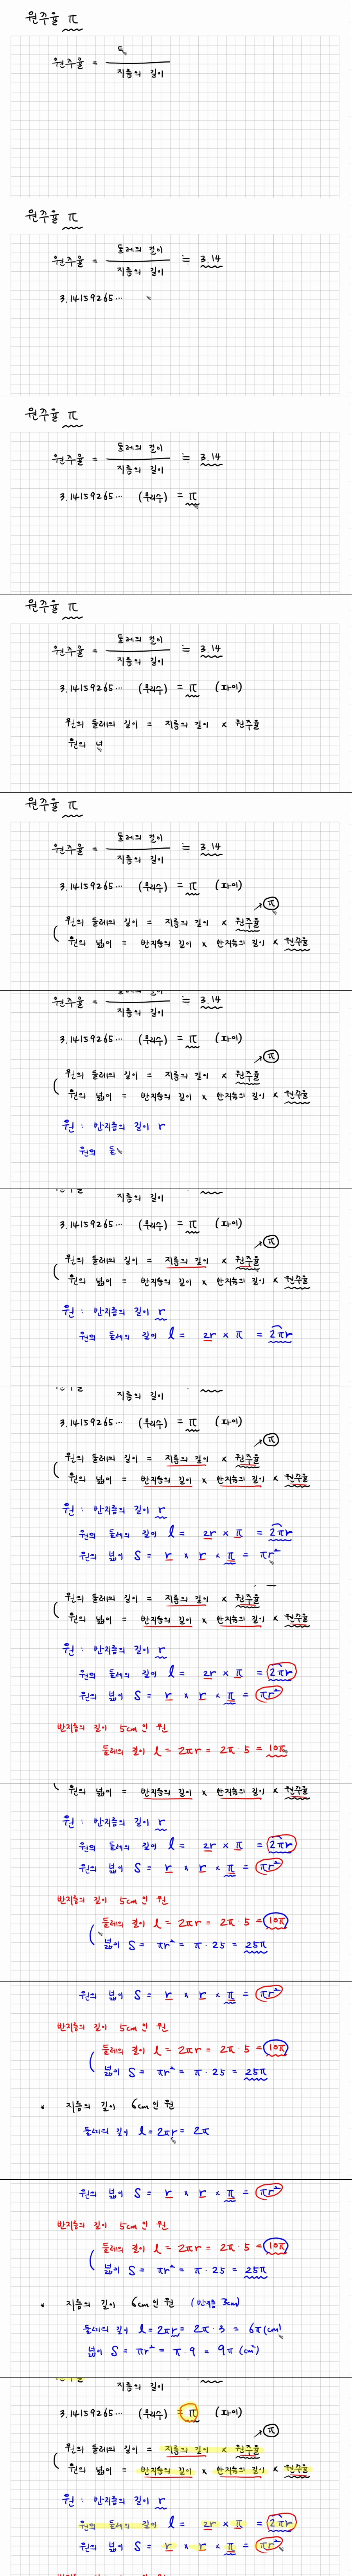 원주율 π
원주율 = ㄷ / 지름의 길이
원주율 π
원주율 = 둘레의 길이 / 지름의 길이 ≒ 3.14
3.14159265…
원주율 π
원주율 = 둘레의 길이 / 지름의 길이 ≒ 3.14
3.14159265… (무리수) = π
원주율 π
원주율 = 둘레의 길이 / 지름의 길이 ≒ 3.14
3.14159265… (무리수) = π (파이)
원의 둘레의 길이 = 지름의 길이 × 원주율
원의 넓
원주율 π
원주율 = 둘레의 길이 / 지름의 길이 ≒ 3.14
3.14159265… (무리수) = π (파이)
→ π
원의 둘레의 길이 = 지름의 길이 × 원주율
원의 넓이 = 반지름의 길이 × 반지름의 길이 × 원주율
원주율 = / 지름의 길이 ≒ 3.14
3.14159265… (무리수) = π (파이)
→ π
원의 둘레의 길이 = 지름의 길이 × 원주율
원의 넓이 = 반지름의 길이 × 반지름의 길이 × 원주율
원 : 반지름의 길이 r
원의 둘
지름의 길이
3.14159265… (무리수) = π (파이)
→ π
원의 둘레의 길이 = 지름의 길이 × 원주율
원의 넓이 = 반지름의 길이 × 반지름의 길이 × 원주율
원 : 반지름의 길이 r
원의 둘레의 길이 l = 2r × π = 2πr
지름의 길이
3.14159265… (무리수) = π (파이)
→ π
원의 둘레의 길이 = 지름의 길이 × 원주율
원의 넓이 = 반지름의 길이 × 반지름의 길이 × 원주율
원 : 반지름의 길이 r
원의 둘레의 길이 l = 2r × π = 2πr
원의 넓이 S = r × r × π = πr²
원의 둘레의 길이 = 지름의 길이 × 원주율
원의 넓이 = 반지름의 길이 × 반지름의 길이 × 원주율
원 : 반지름의 길이 r
원의 둘레의 길이 l = 2r × π = 2πr
원의 넓이 S = r × r × π = πr²
반지름의 길이 5cm 인 원
둘레의 길이 l = 2πr = 2π · 5 = 10π
원의 넓이 = 반지름의 길이 × 반지름의 길이 × 원주율
원 : 반지름의 길이 r
원의 둘레의 길이 l = 2r × π = 2πr
원의 넓이 S = r × r × π = πr²
반지름의 길이 5cm 인 원
둘레의 길이 l = 2πr = 2π · 5 = 10π
넓이 S = πr² = π · 25 = 25π
원의 넓이 S = r × r × π = πr²
반지름의 길이 5cm 인 원
둘레의 길이 l = 2πr = 2π · 5 = 10π
넓이 S = πr² = π · 25 = 25π
* 지름의 길이 6cm 인 원
둘레의 길이 l = 2πr = 2π
원의 넓이 S = r × r × π = πr²
반지름의 길이 5cm 인 원
둘레의 길이 l = 2πr = 2π · 5 = 10π
넓이 S = πr² = π · 25 = 25π
* 지름의 길이 6cm 인 원 (반지름 3cm)
둘레의 길이 l = 2πr = 2π · 3 = 6π (cm)
넓이 S = πr² = π · 9 = 9π (cm²)
지름의 길이
3.14159265… (무리수) = π (파이)
→ π
원의 둘레의 길이 = 지름의 길이 × 원주율
원의 넓이 = 반지름의 길이 × 반지름의 길이 × 원주율
원 : 반지름의 길이 r
원의 둘레의 길이 l = 2r × π = 2πr
원의 넓이 S = r × r × π = πr²